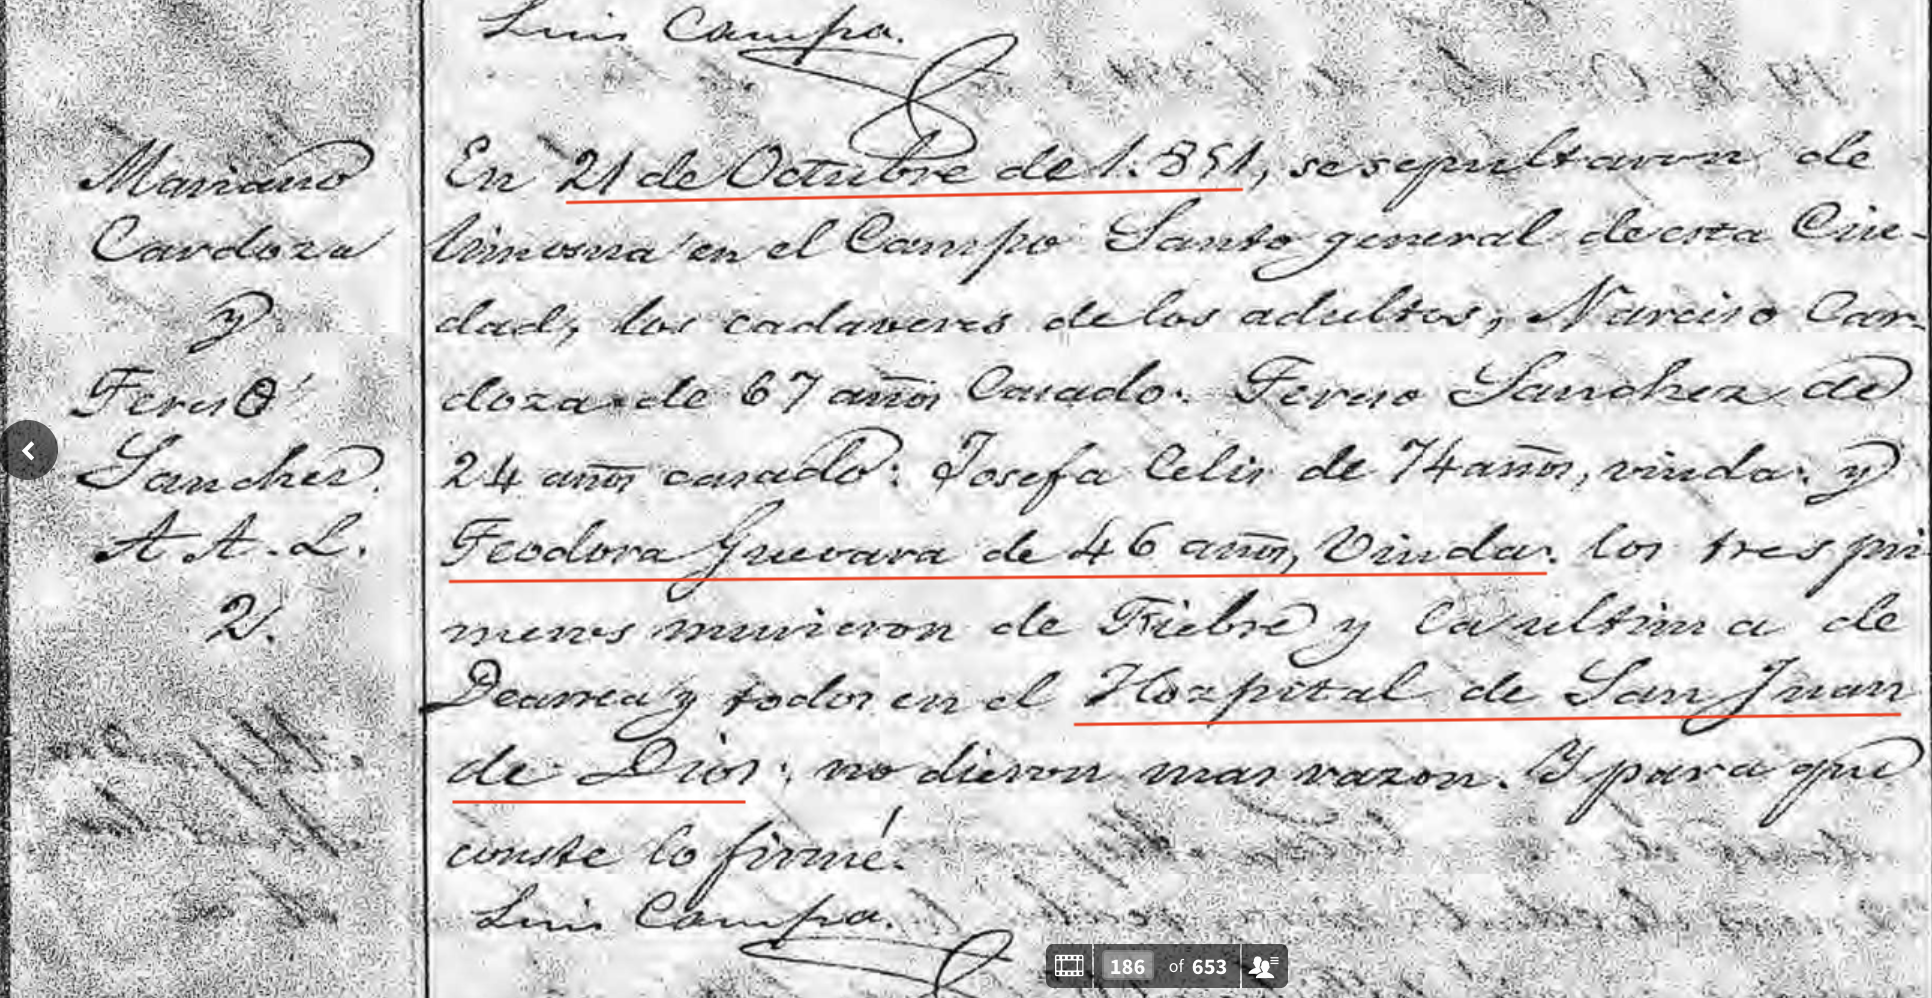 Luis Campa.
Mariano
Cardoza
y
Sanchez
A A. L.
2.
En 21 de Octubre de 1.851, se sepultaron de
limosna en el Campo Santo general de esta Ciu-
dad, los cadaveres de los adultos, Narciso Car-
doza de 67 años Casado. Sanchez de
24 años casado: Josefa Celis de 74 años, viuda: y
Teodora Guevara de 46 años, Viuda: los tres pri
meros murieron de Fiebre y la ultima de
y todos en el Hozpital de San Juan
de Dios: no dieron mas razon. Y para que
conste lo firmé.
Luis Campa.
186 of 653